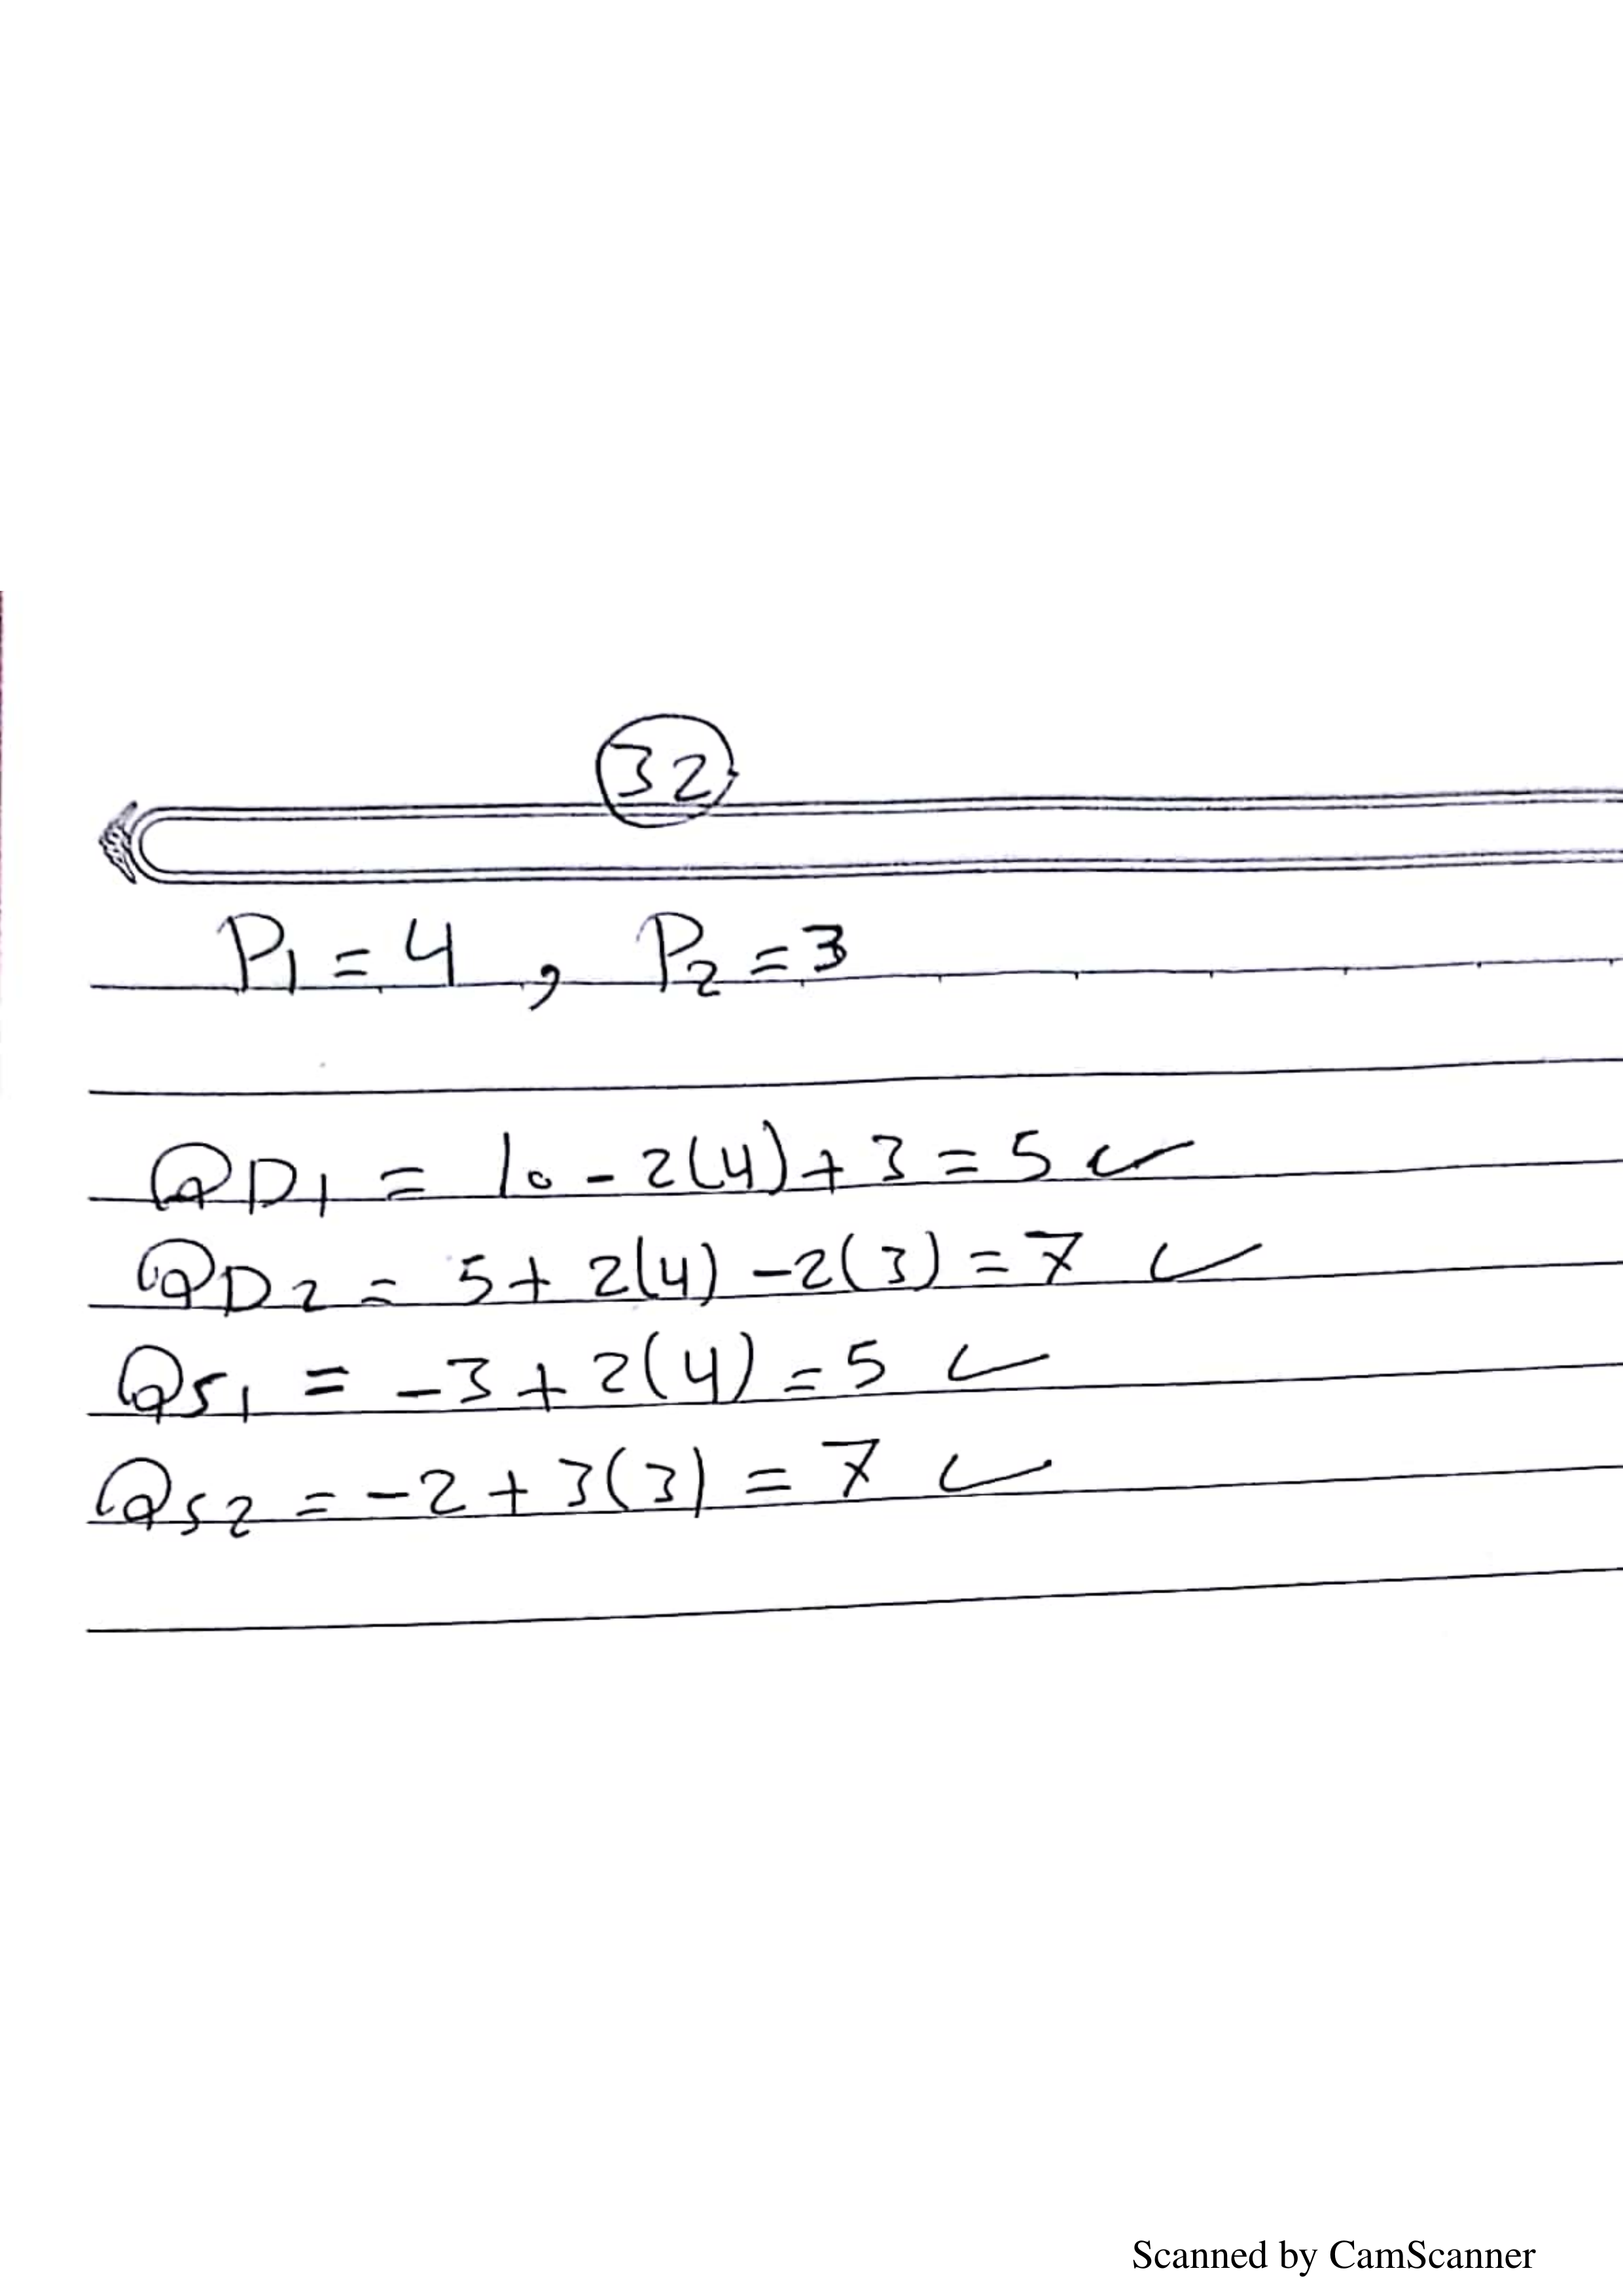 32
P1 = 4 , P2 = 3
QD1 = 10 - 2(4) + 3 = 5 ✓
QD2 = 5 + 2(4) - 2(3) = 7 ✓
QS1 = -3 + 2(4) = 5 ✓
QS2 = -2 + 3(3) = 7 ✓
Scanned by CamScanner